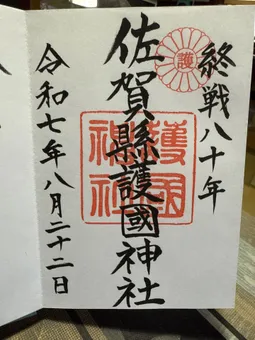 終戦八十年
護
佐賀縣護國神社
護國神社
令和七年八月二十二日